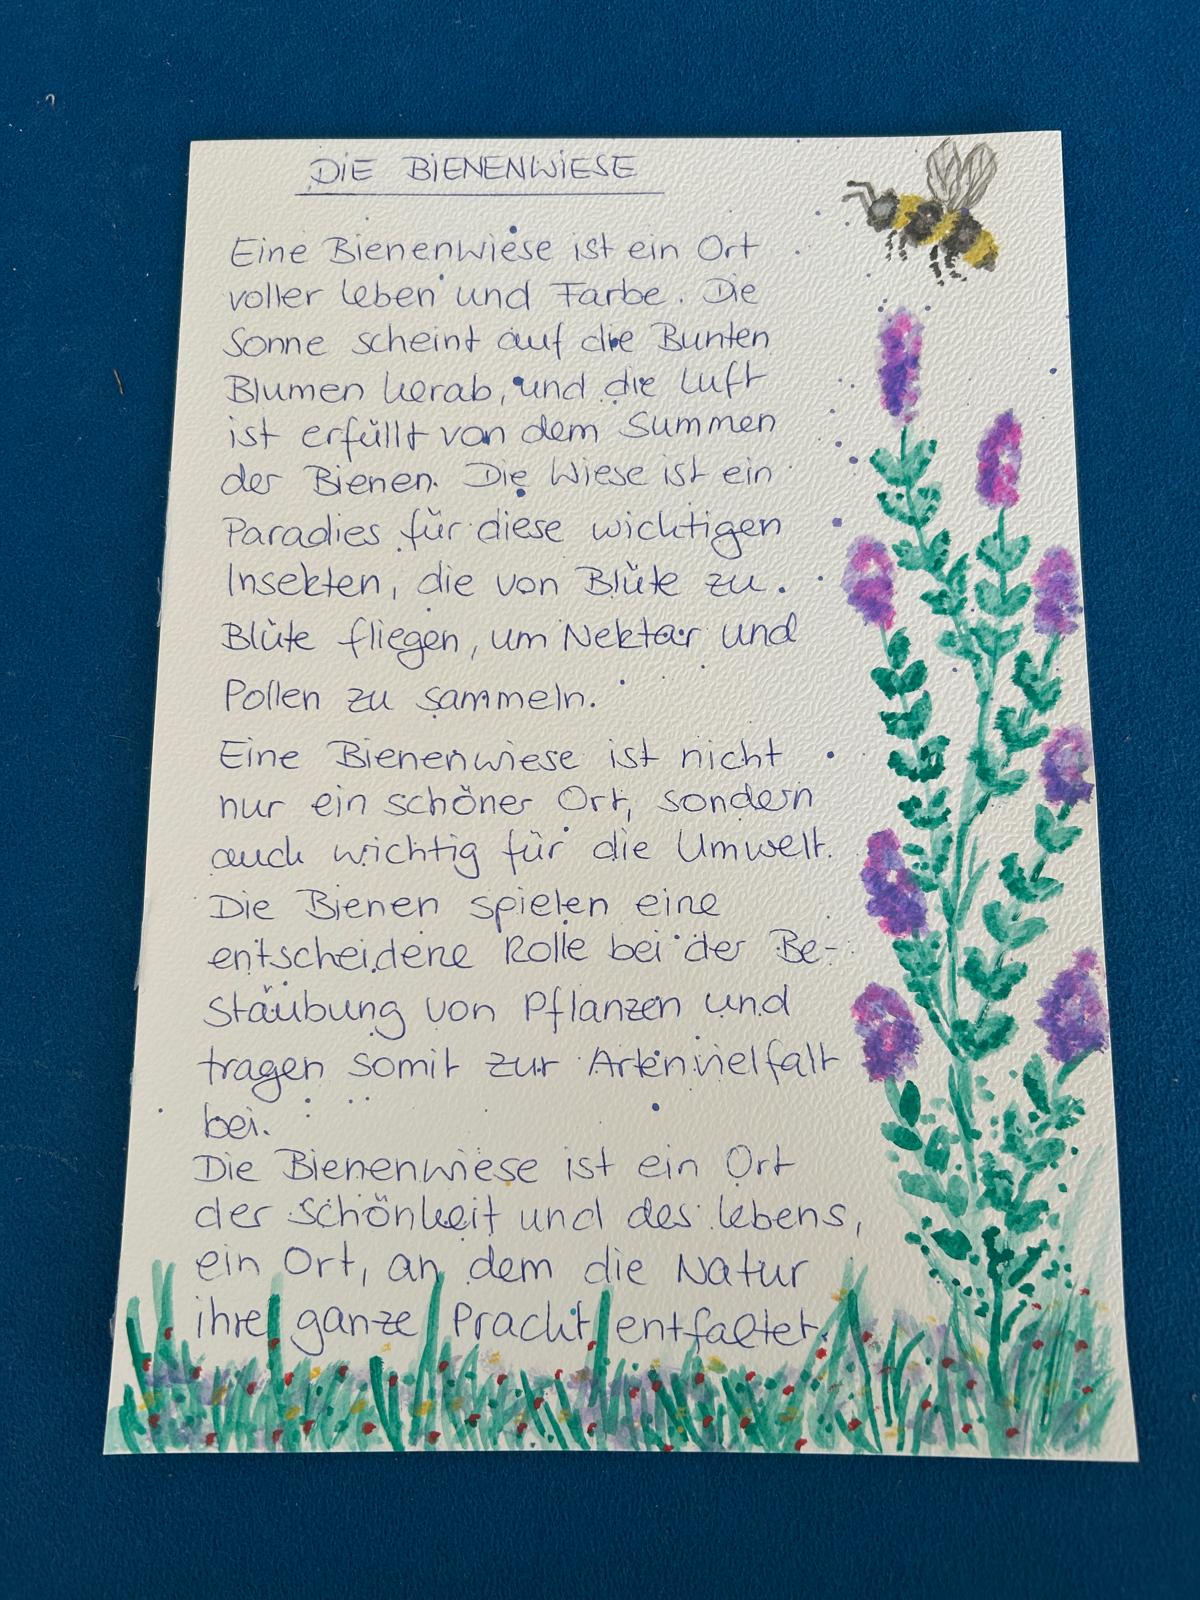 DIE BIENENWIESE
Eine Bienenwiese ist ein Ort
voller Leben und Farbe. Die
Sonne scheint auf die Bunten
Blumen herab, und die Luft
ist erfüllt von dem Summen
der Bienen. Die Wiese ist ein
Paradies für diese wichtigen
Insekten, die von Blüte zu
Blüte fliegen, um Nektar und
Pollen zu sammeln.
Eine Bienenwiese ist nicht
nur ein schöner Ort, sondern
auch wichtig für die Umwelt.
Die Bienen spielen eine
entscheidene Rolle bei der Be-
stäubung von Pflanzen und
tragen somit zur Artenvielfalt
bei.
Die Bienenwiese ist ein Ort
der Schönheit und des Lebens,
ein Ort, an dem die Natur
ihre ganze Pracht entfaltet.